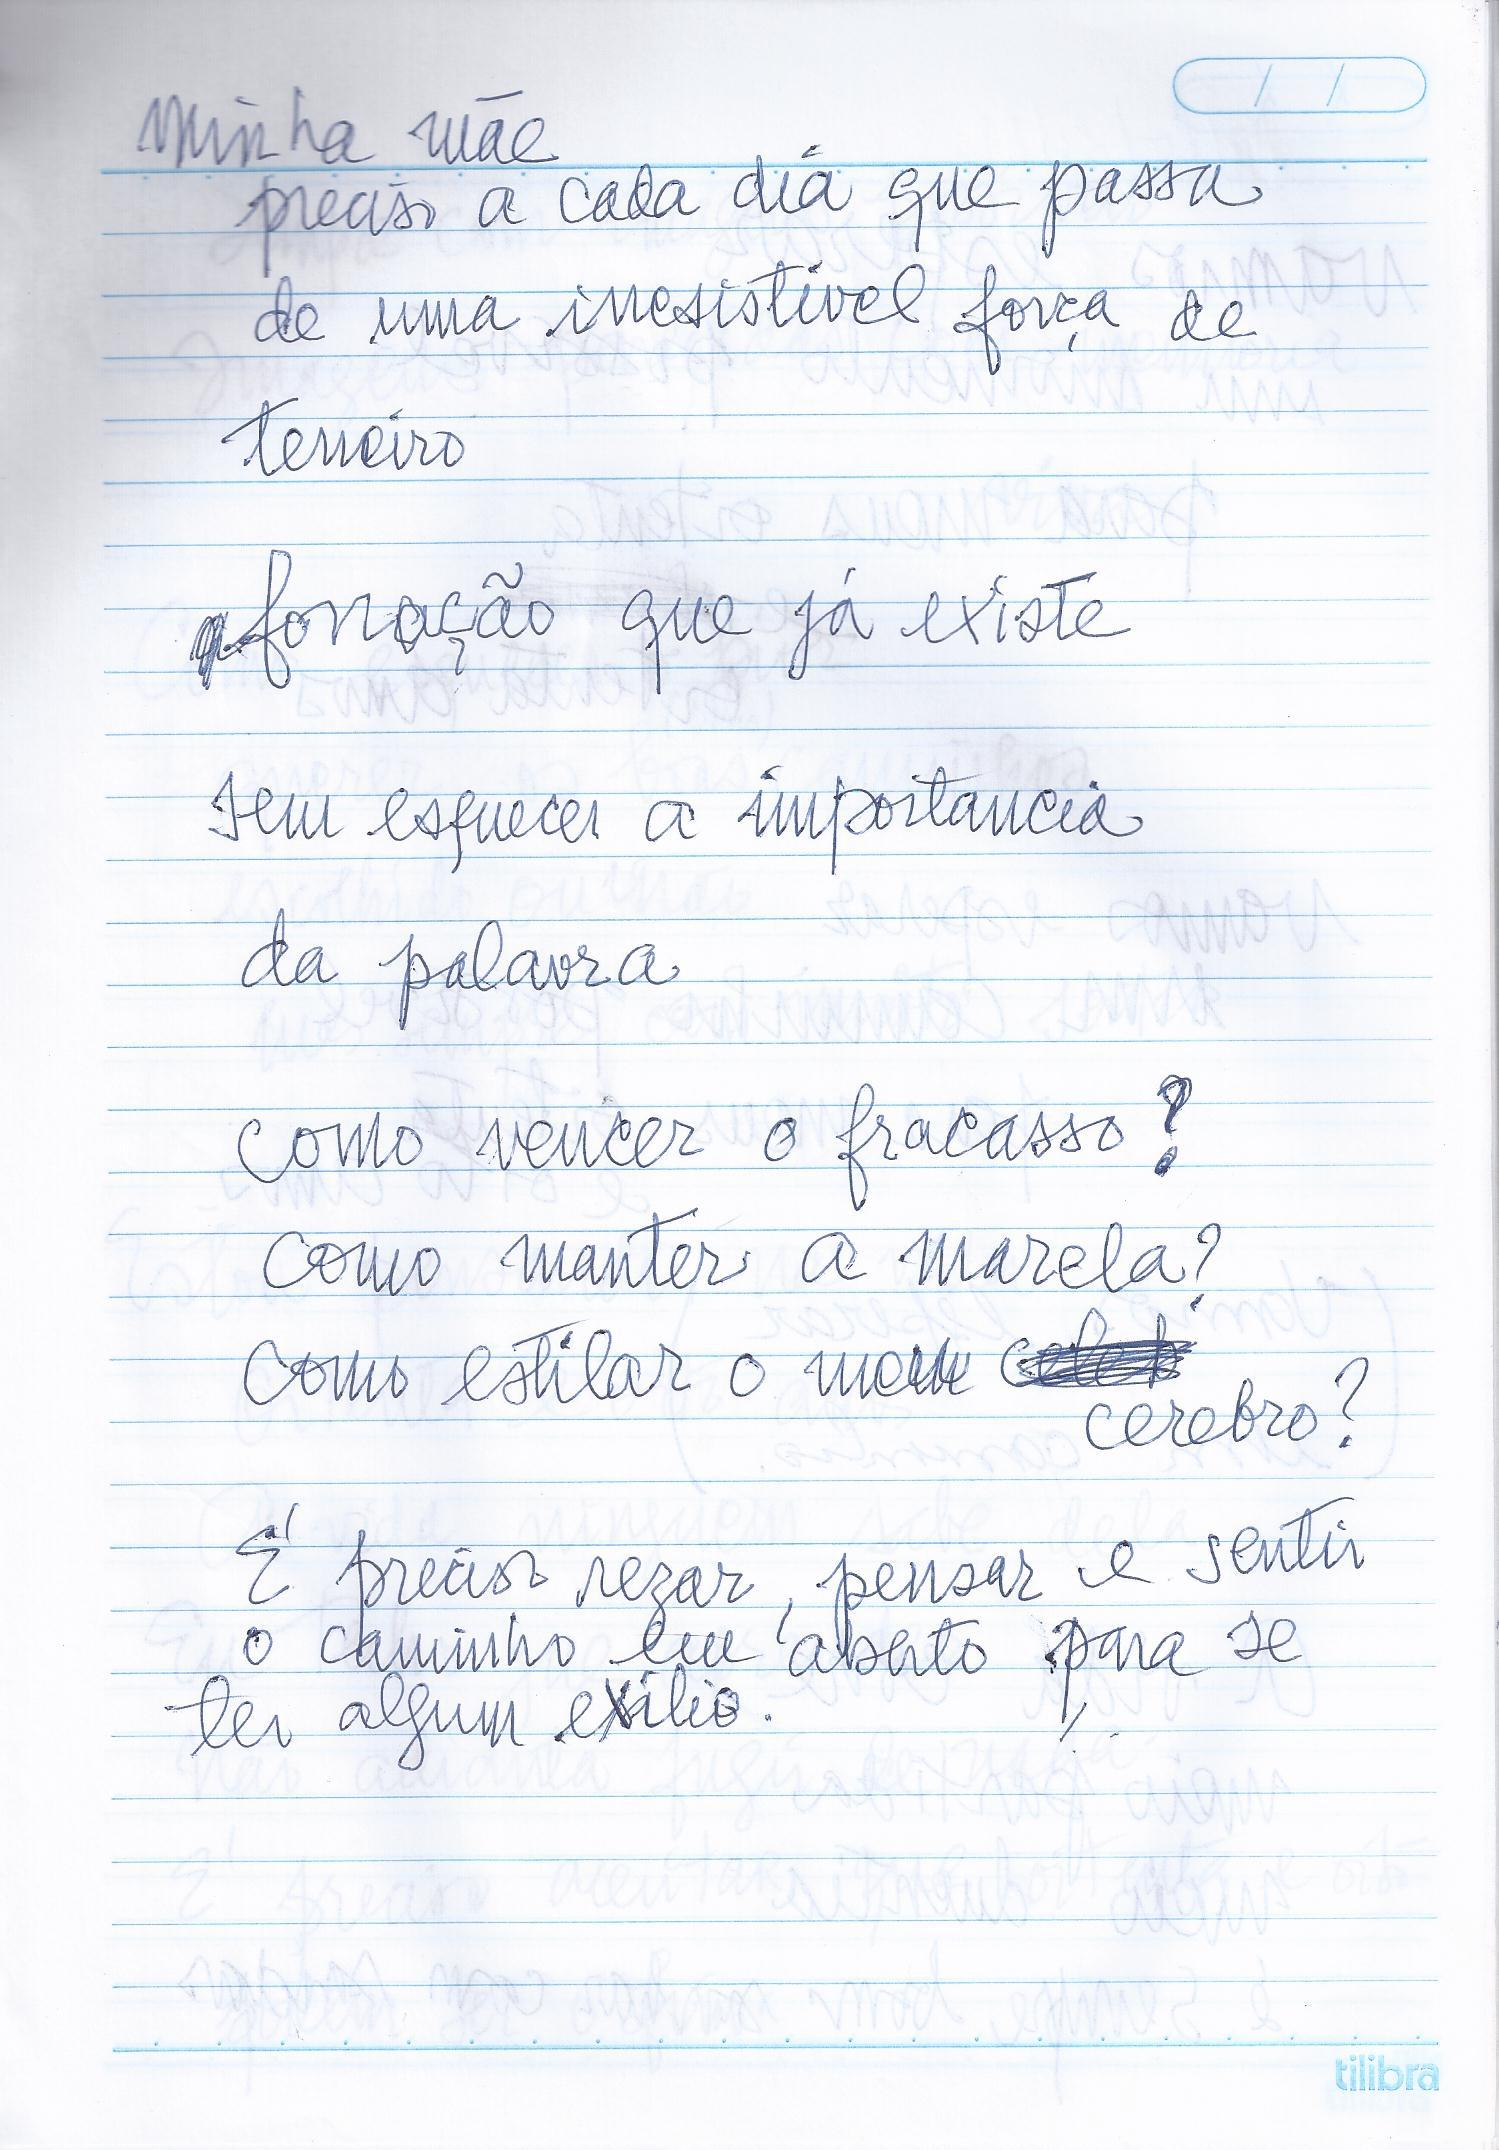 Minha mãe
preciso a cada dia que passa
de uma inesistivel força de
terreiro
que já existe
sem esquecer a importancia
da palavra
como vencer o fracasso?
como manter a marcla?
como estilar o meu
cerebro?
É preciso rezar, pensar e sentir
o caminho em aberto para se
ter algum exilio.
tilibra